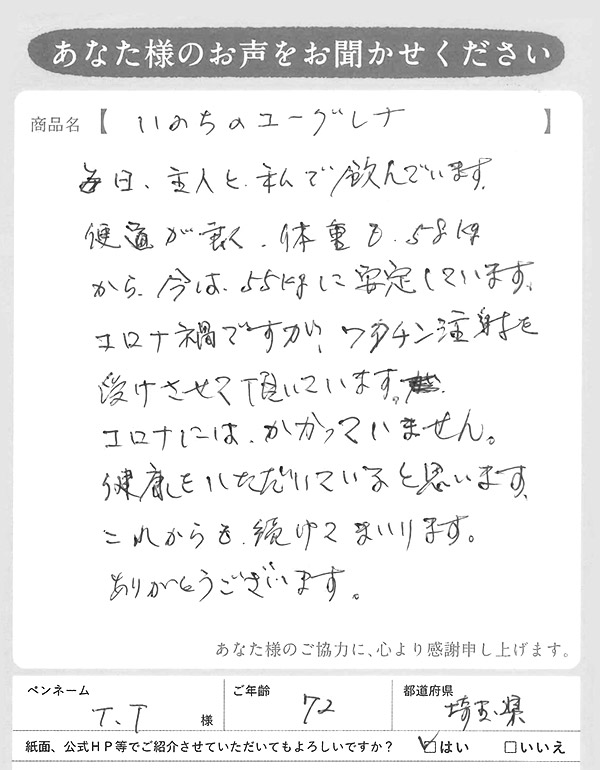 あなた様のお声をお聞かせください
商品名【 いのちのユーグレナ 】
毎日、主人と、私で飲んでいます。
便通が良く、体重も、58kg
から、今は、55kgに安定しています。
コロナ禍ですが、ワクチン注射も
受けさせて頂いています。
コロナには、かかっていません。
健康をいただいていると思います。
これからも、続けてまいります。
ありがとうございます。
あなた様のご協力に、心より感謝申し上げます。
ペンネーム T.T 様 ご年齢 72 都道府県 埼玉県
紙面、公式HP等でご紹介させていただいてもよろしいですか? ☑はい □いいえ